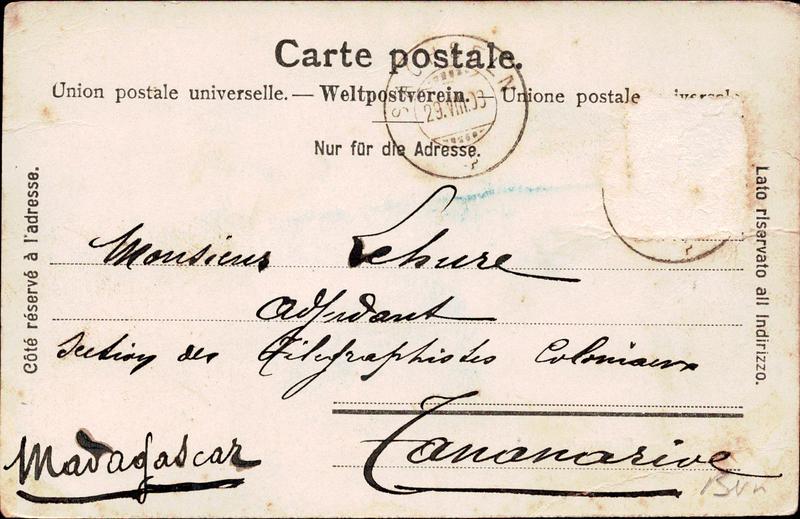 Carte postale.
Union postale universelle. — Weltpostverein. — Unione postale universale
Nur für die Adresse.
29.VIII.03
Côté réservé à l'adresse.
Lato riservato all Indirizzo.
Monsieur Lehure
Adjudant
Section des Télégraphistes Coloniaux
Tananarive
Madagascar